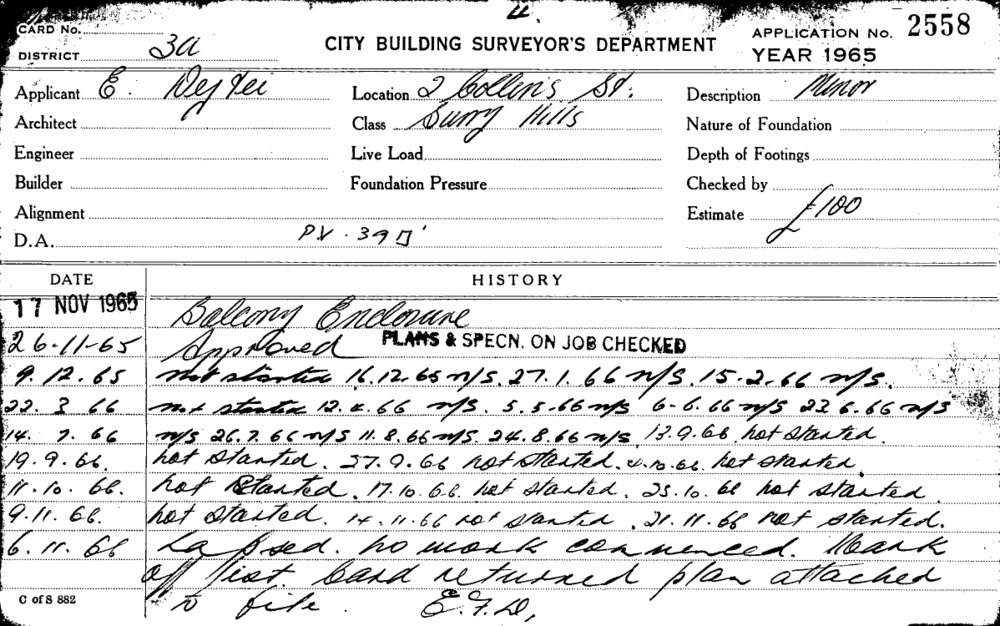 11.
CARD No.
CITY BUILDING SURVEYOR'S DEPARTMENT
APPLICATION No. 2558
DISTRICT 3a
YEAR 1965
Applicant E.
Location 2 Collins St.
Description Minor
Architect
Class Surry Hills
Nature of Foundation
Engineer
Live Load
Depth of Footings
Builder
Foundation Pressure
Checked by
Alignment
Estimate £100
D.A. PV. 39
DATE HISTORY
17 NOV 1965 Balcony Enclosure
26-11-65 Approved PLANS & SPECN. ON JOB CHECKED
9.12.65 not started 16.12.65 n/s. 27.1.66 n/s. 15.2.66 n/s.
22.3.66 not started 12.4.66 n/s. 5.5.66 n/s 6-6.66 n/s 23.6.66 n/s
14.7.66 n/s 26.7.66 n/s 11.8.66 n/s. 24.8.66 n/s 13.9.66 not started.
19.9.66. not started. 27.9.66 not started. 4.10.66. not started.
11.10.66. not started. 17.10.66. not started. 25.10.66 not started.
9.11.66. not started. 14.11.66 not started. 21.11.66 not started.
6.11.66 Lapsed. no work commenced. Mark
off list. Card returned plan attached
to file. E.F.D.
C of S 882